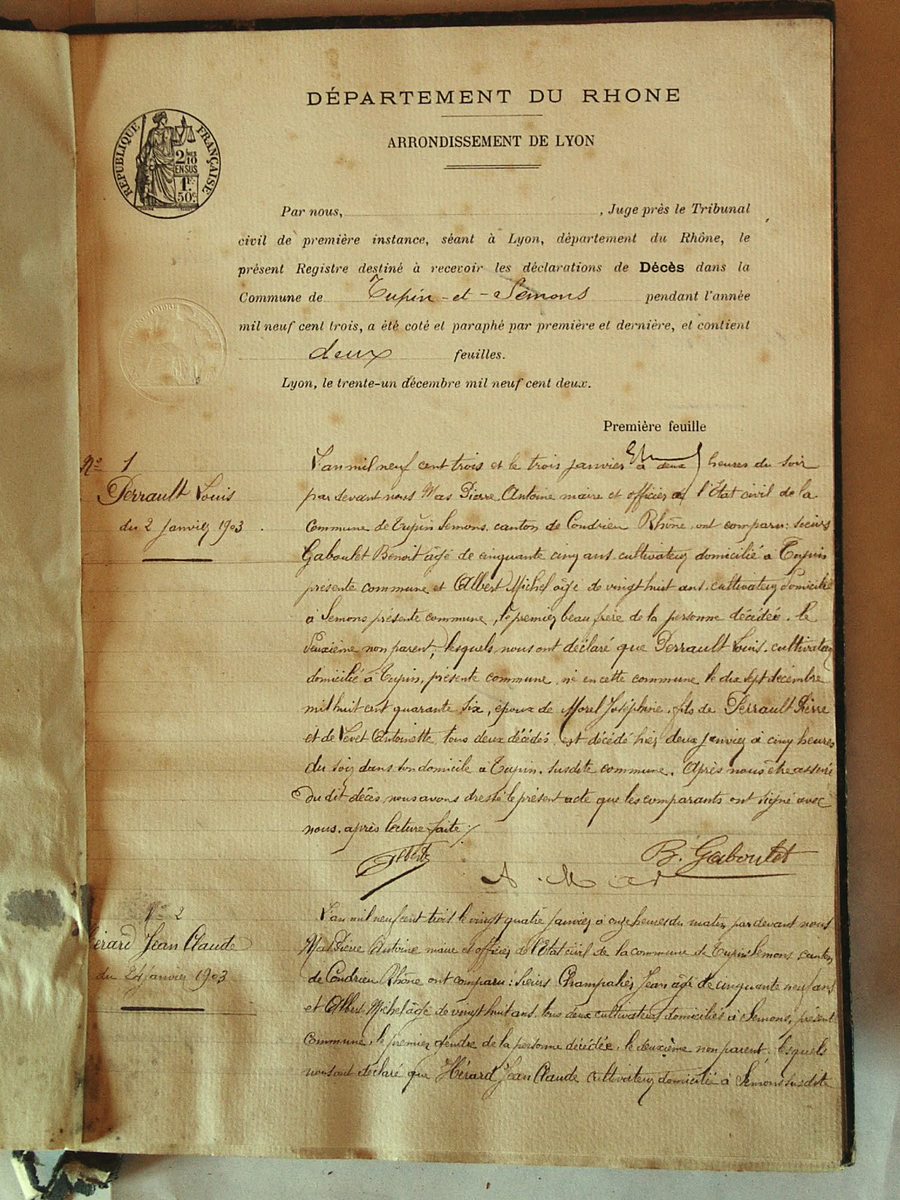 DÉPARTEMENT DU RHONE
ARRONDISSEMENT DE LYON
RÉPUBLIQUE FRANÇAISE
2/10
EN SUS
1F
50c
Par nous, , Juge près le Tribunal
civil de première instance, séant à Lyon, département du Rhône, le
présent Registre destiné à recevoir les déclarations de Décès dans la
Commune de Tupin-et-Semons pendant l'année
mil neuf cent trois, a été coté et paraphé par première et dernière, et contient
deux feuilles.
Lyon, le trente-un décembre mil neuf cent deux.
Première feuille
No 1
Perrault Louis
du 2 Janvier 1903.
L'an mil neuf cent trois et le trois janvier à deux heures du soir
par devant nous Mas Pierre Antoine maire et officier de l'Etat civil de la
Commune de Tupin Semons, canton de Condrieu Rhône, ont comparu: sieurs
Gaboulet Benoit âgé de cinquante cinq ans, cultivateur domicilié à Tupin
présente commune et Albert Michel âgé de vingt huit ans, cultivateur domicilié
à Semons présente commune, le premier beau frère de la personne décédée, le
deuxième non parent, lesquels nous ont déclaré que Perrault Louis, cultivateur
domicilié à Tupin, présente commune, né en cette commune le dix sept décembre
mil huit cent quarante six, époux de Morel Joséphine, fils de Perrault Pierre
et de Levet Antoinette, tous deux décédés, est décédé hier deux janvier à cinq heures
du soir dans son domicile à Tupin, susdite commune. Après nous être assuré
du dit décès, nous avons dressé le présent acte que les comparants ont signé avec
nous, après lecture faite
Albert
B. Gaboulet
A. Mas
No 2
Hérard Jean Claude
du 24 janvier 1903
L'an mil neuf cent trois, le vingt quatre janvier à onze heures du matin, par devant nous
Mas Pierre Antoine maire et officier de l'Etat civil de la commune de Tupin Semons, canton
de Condrieu Rhône ont comparu: sieurs Jean âgé de cinquante neuf ans
et Albert Michel âgé de vingt huit ans, tous deux cultivateurs domiciliés à Semons, présente
commune, le premier gendre de la personne décédée, le deuxième non parent, lesquels
nous ont déclaré que Hérard Jean Claude cultivateur domicilié à Semons susdite